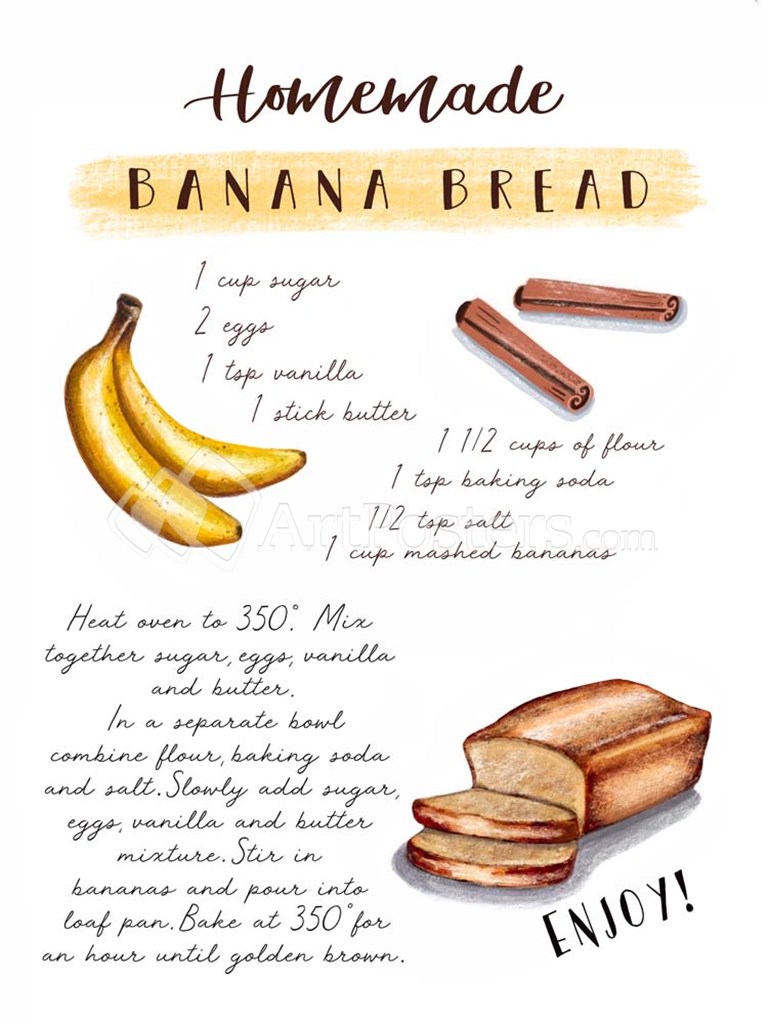 Homemade
BANANA BREAD
1 cup sugar
2 eggs
1 tsp vanilla
1 stick butter
1 1/2 cups of flour
1 tsp baking soda
1/2 tsp salt
1 cup mashed bananas
ArtPosters.com
Heat oven to 350°. Mix
together sugar, eggs, vanilla
and butter.
In a separate bowl
combine flour, baking soda
and salt. Slowly add sugar,
eggs, vanilla and butter
mixture. Stir in
bananas and pour into
loaf pan. Bake at 350° for
an hour until golden brown.
ENJOY!